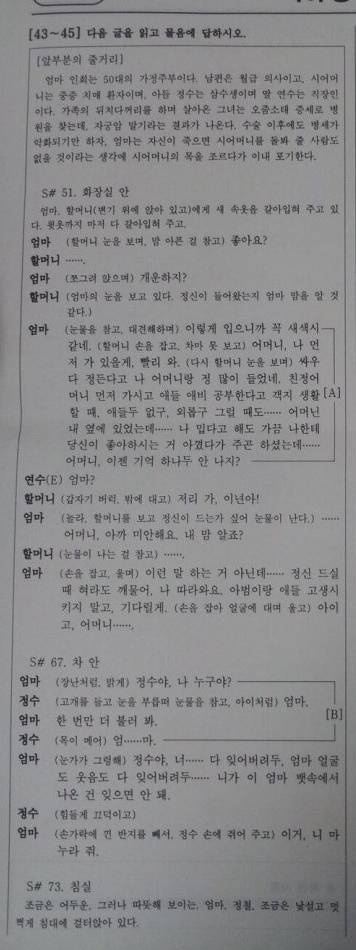 [43~45] 다음 글을 읽고 물음에 답하시오.
[앞부분의 줄거리]
엄마 인희는 50대의 가정주부이다. 남편은 월급 의사이고, 시어머
니는 중증 치매 환자이며, 아들 정수는 삼수생이며 딸 연수는 직장인
이다. 가족의 뒤치다꺼리를 하며 살아온 그녀는 오줌소태 증세로 병
원을 찾는데, 자궁암 말기라는 결과가 나온다. 수술 이후에도 병세가
악화되기만 하자, 엄마는 자신이 죽으면 시어머니를 돌봐 줄 사람도
없을 것이라는 생각에 시어머니의 목을 조르다가 이내 포기한다.
S# 51. 화장실 안
엄마, 할머니(변기 위에 앉아 있고)에게 새 속옷을 갈아입혀 주고 있
다. 윗옷까지 마저 다 갈아입혀 주고.
엄마 (할머니 눈을 보며, 맘 아픈 걸 참고) 좋아요?
할머니 …….
엄마 (쪼그려 앉으며) 개운하지?
할머니 (엄마의 눈을 보고 있다. 정신이 들어왔는지 엄마 맘을 알 것
같다.)
엄마 (눈물을 참고, 대견해하며) 이렇게 입으니까 꼭 새색시
같네. (할머니 손을 잡고, 차마 못 보고) 어머니, 나 먼
저 가 있을게, 빨리 와. (다시 할머니 눈을 보며) 싸우
다 정든다고 나 어머니랑 정 많이 들었네. 친정어
머니 먼저 가시고 애들 애비 공부한다고 객지 생활 [A]
할 때, 애들두 없구, 외롭구 그럴 때도…… 어머닌
내 옆에 있었는데…… 나 밉다고 해도 가끔 나한테
당신이 좋아하시는 거 아꼈다가 주곤 하셨는데……
어머니, 이젠 기억 하나두 안 나지?
연수(E) 엄마?
할머니 (갑자기 버럭, 밖에 대고) 저리 가, 이년아!
엄마 (놀라, 할머니를 보고 정신이 드는가 싶어 눈물이 난다.) ……
어머니, 아까 미안해요. 내 맘 알죠?
할머니 (눈물이 나는 걸 참고) …….
엄마 (손을 잡고, 울며) 이런 말 하는 거 아닌데…… 정신 드실
때 혀라도 깨물어, 나 따라와요. 아범이랑 애들 고생시
키지 말고, 기다릴게. (손을 잡아 얼굴에 대며 울고) 아이
고, 어머니…….
S# 67. 차 안
엄마 (장난처럼, 밝게) 정수야, 나 누구야?
정수 (고개를 들고 눈을 부릅떠 눈물을 참고, 아이처럼) 엄마.
엄마 한 번만 더 불러 봐. [B]
정수 (목이 메어) 엄……마.
엄마 (눈가가 그렁해) 정수야, 너…… 다 잊어버려두, 엄마 얼굴
도 웃음도 다 잊어버려두…… 니가 이 엄마 뱃속에서
나온 건 잊으면 안 돼.
정수 (힘들게 끄덕이고)
엄마 (손가락에 낀 반지를 빼서, 정수 손에 쥐어 주고) 이거, 니 마
누라 줘.
S# 73. 침실
조금은 어두운, 그러나 따뜻해 보이는. 엄마, 정철, 조금은 낯설고 멋
쩍게 침대에 걸터앉아 있다.